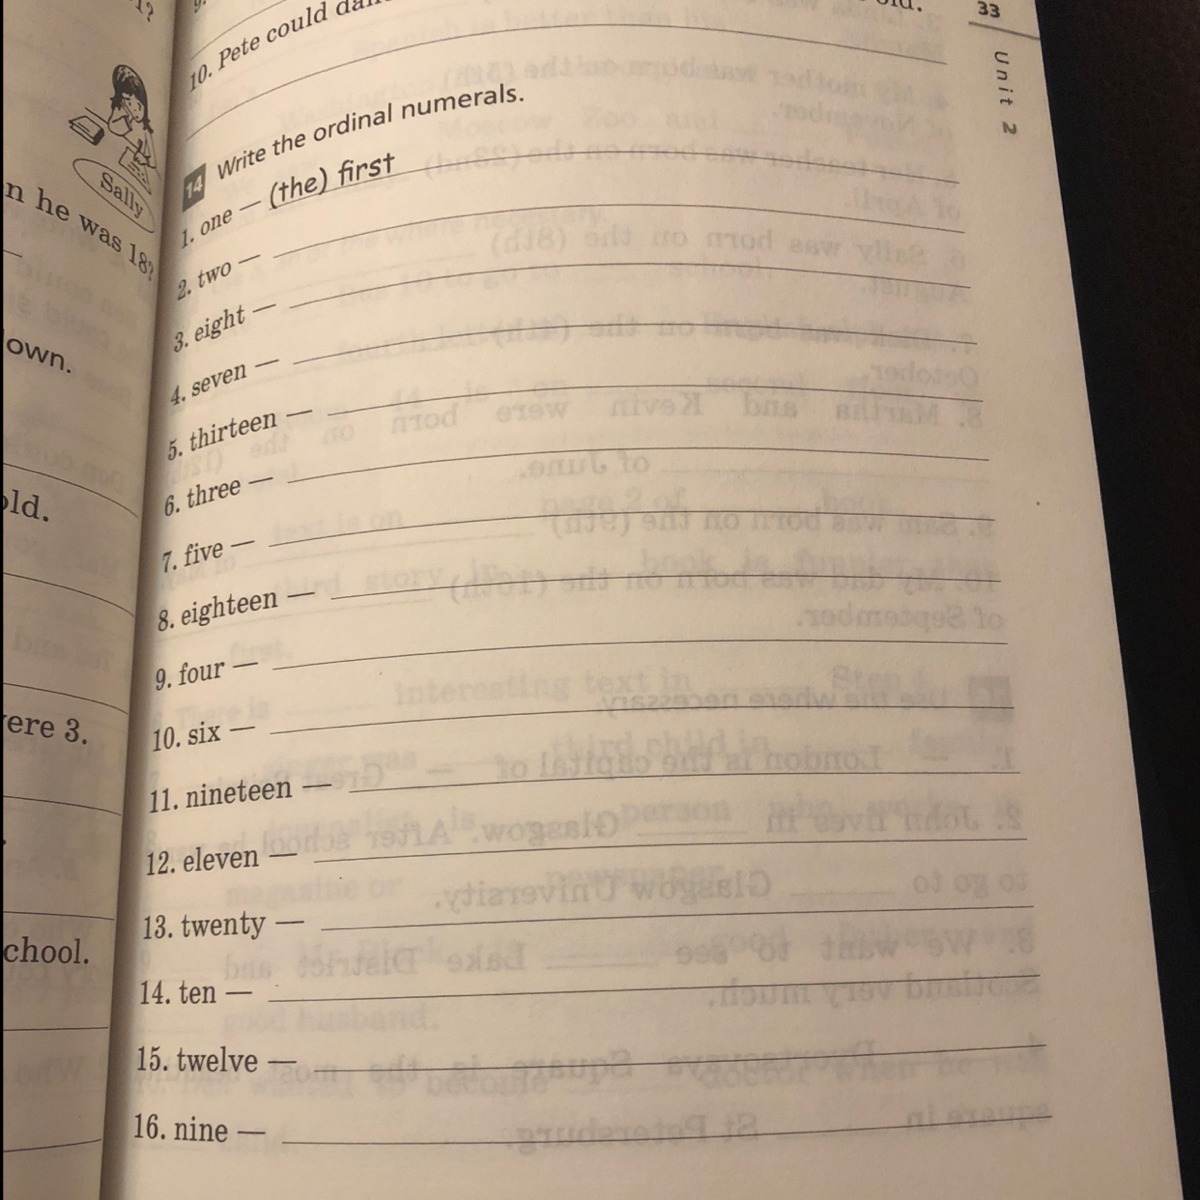 33
Unit 2
10. Pete could
14 Write the ordinal numerals.
1. one — (the) first
2. two —
3. eight —
4. seven —
5. thirteen —
6. three —
7. five —
8. eighteen —
9. four —
10. six —
11. nineteen —
12. eleven —
13. twenty —
14. ten —
15. twelve —
16. nine —
Sally
n he was 18?
own.
old.
ere 3.
chool.